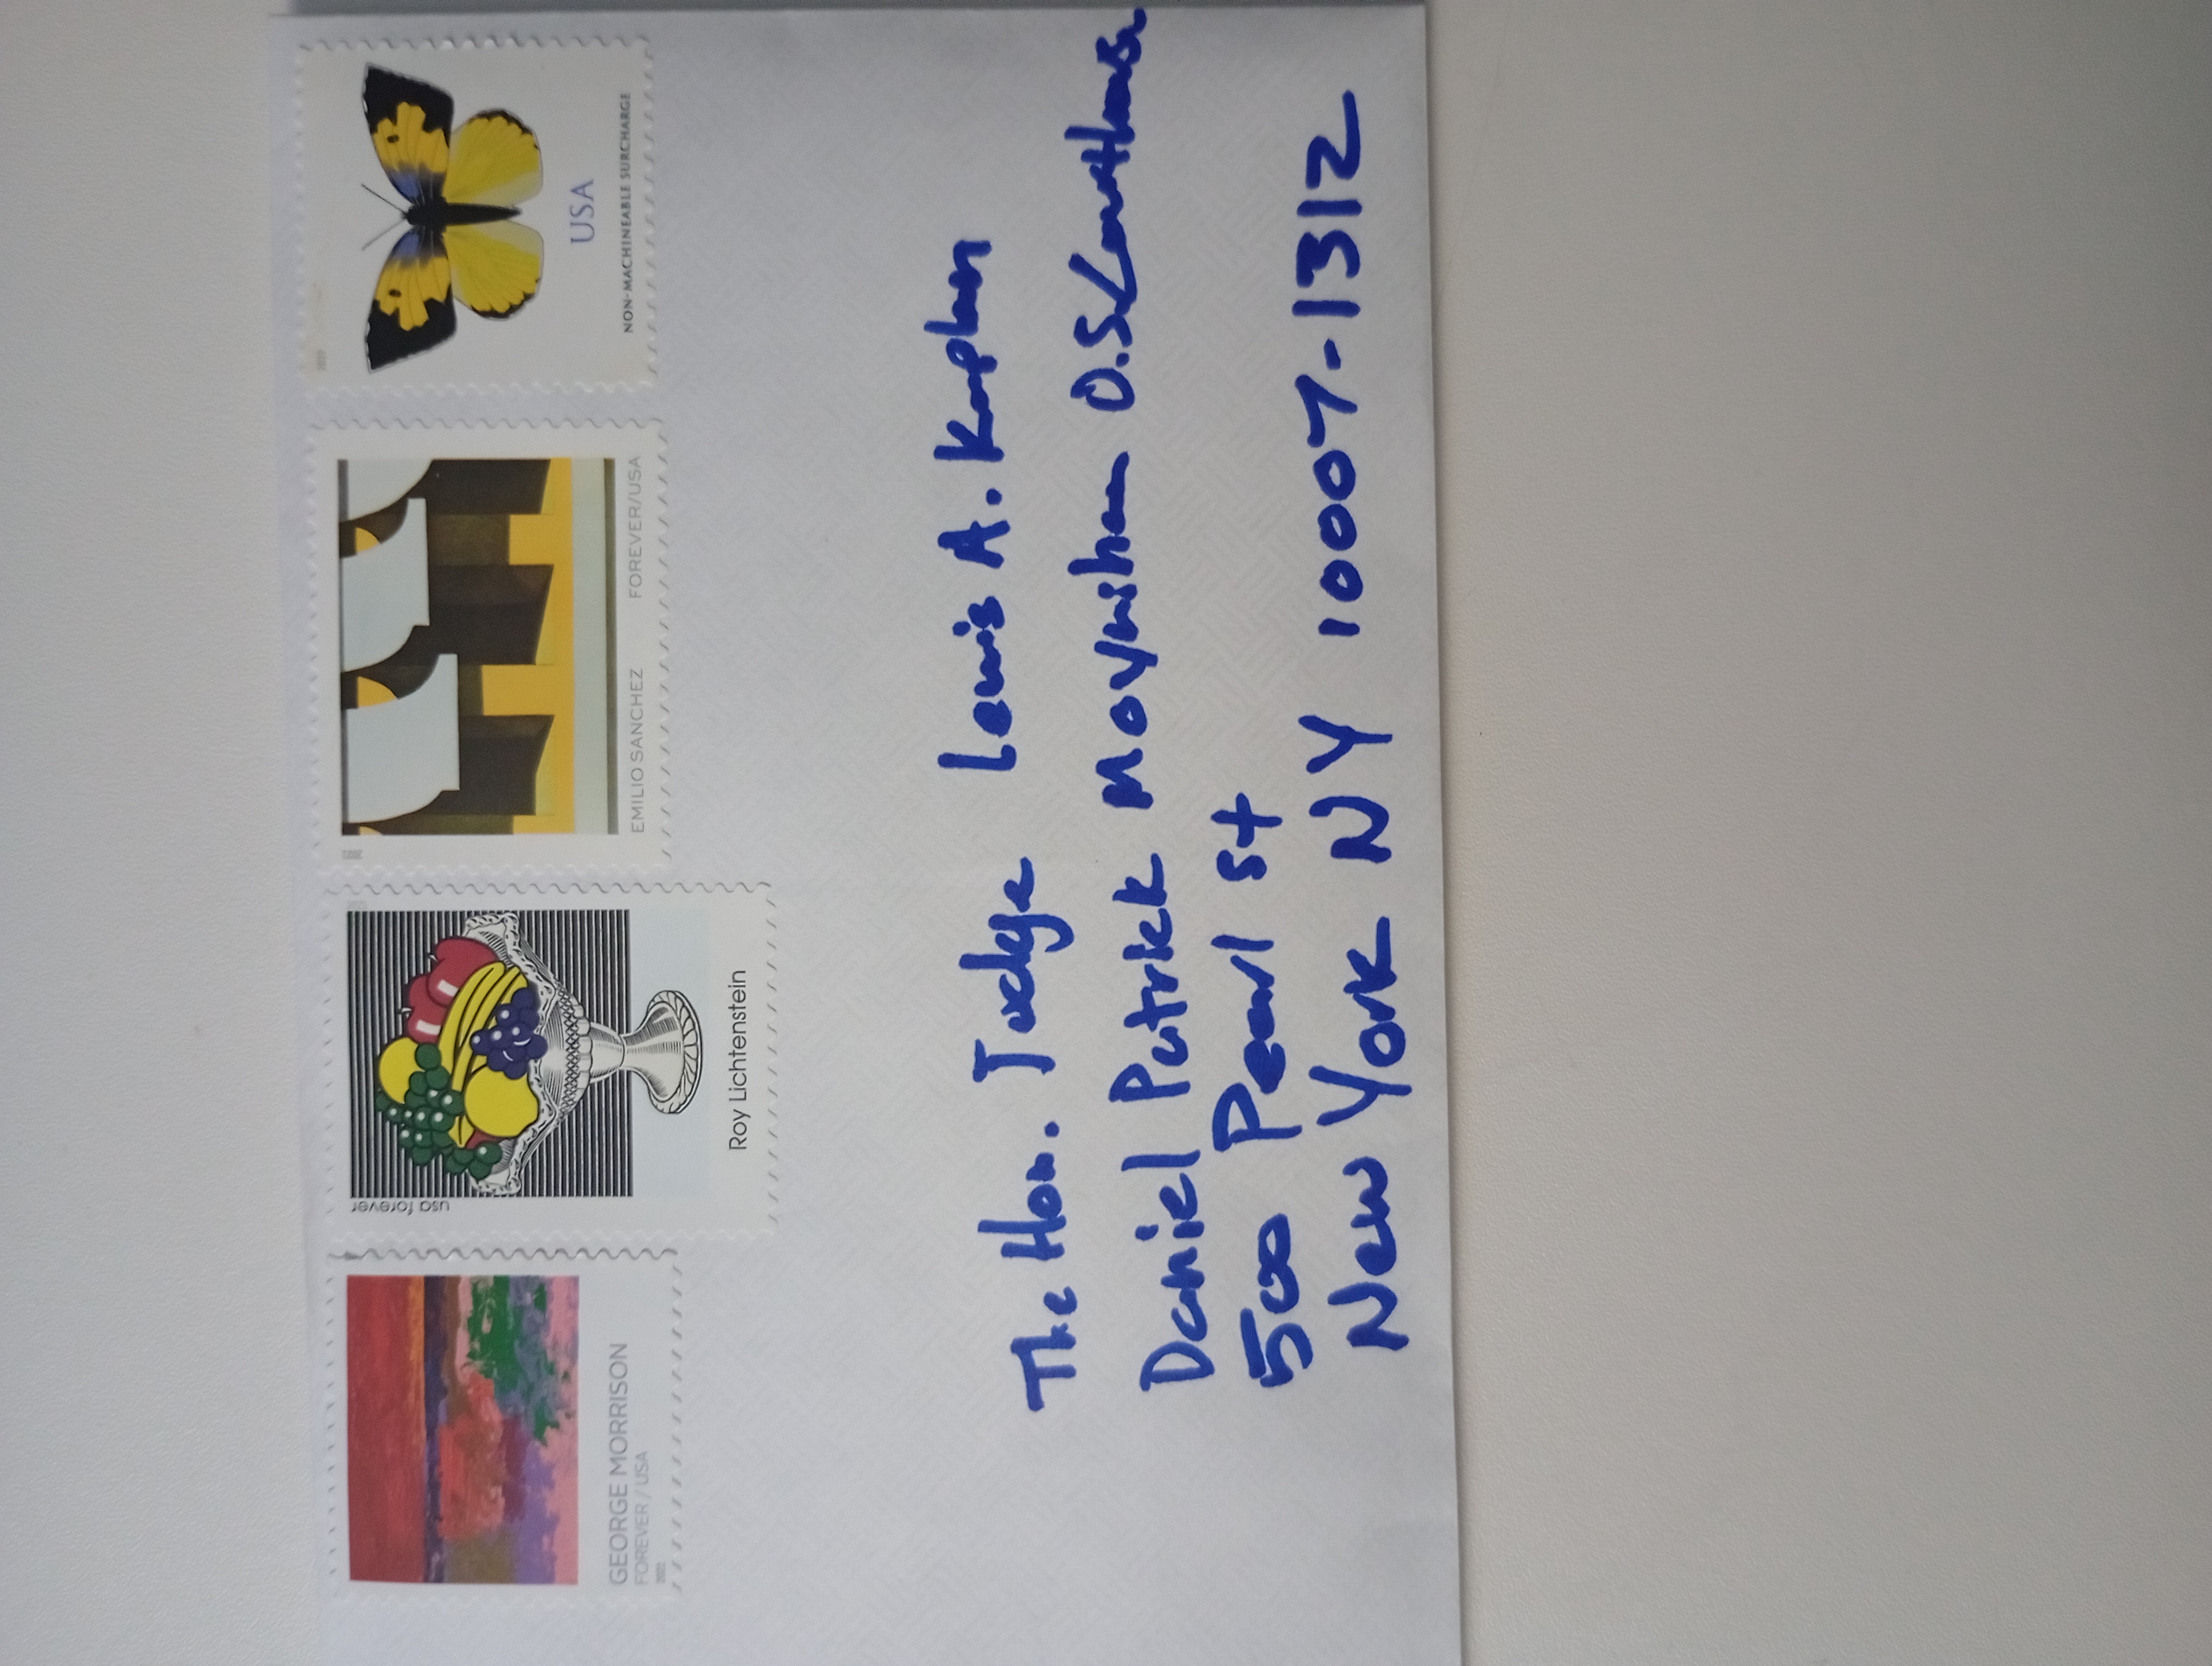 GEORGE MORRISON
FOREVER / USA
2022
usa forever
Roy Lichtenstein
2021
EMILIO SANCHEZ FOREVER/USA
USA
NON-MACHINEABLE SURCHARGE
The Hon. Judge Lewis A. Kaplan
Daniel Patrick Moynihan U.S. Courthouse
500 Pearl St
New York NY 10007-1312